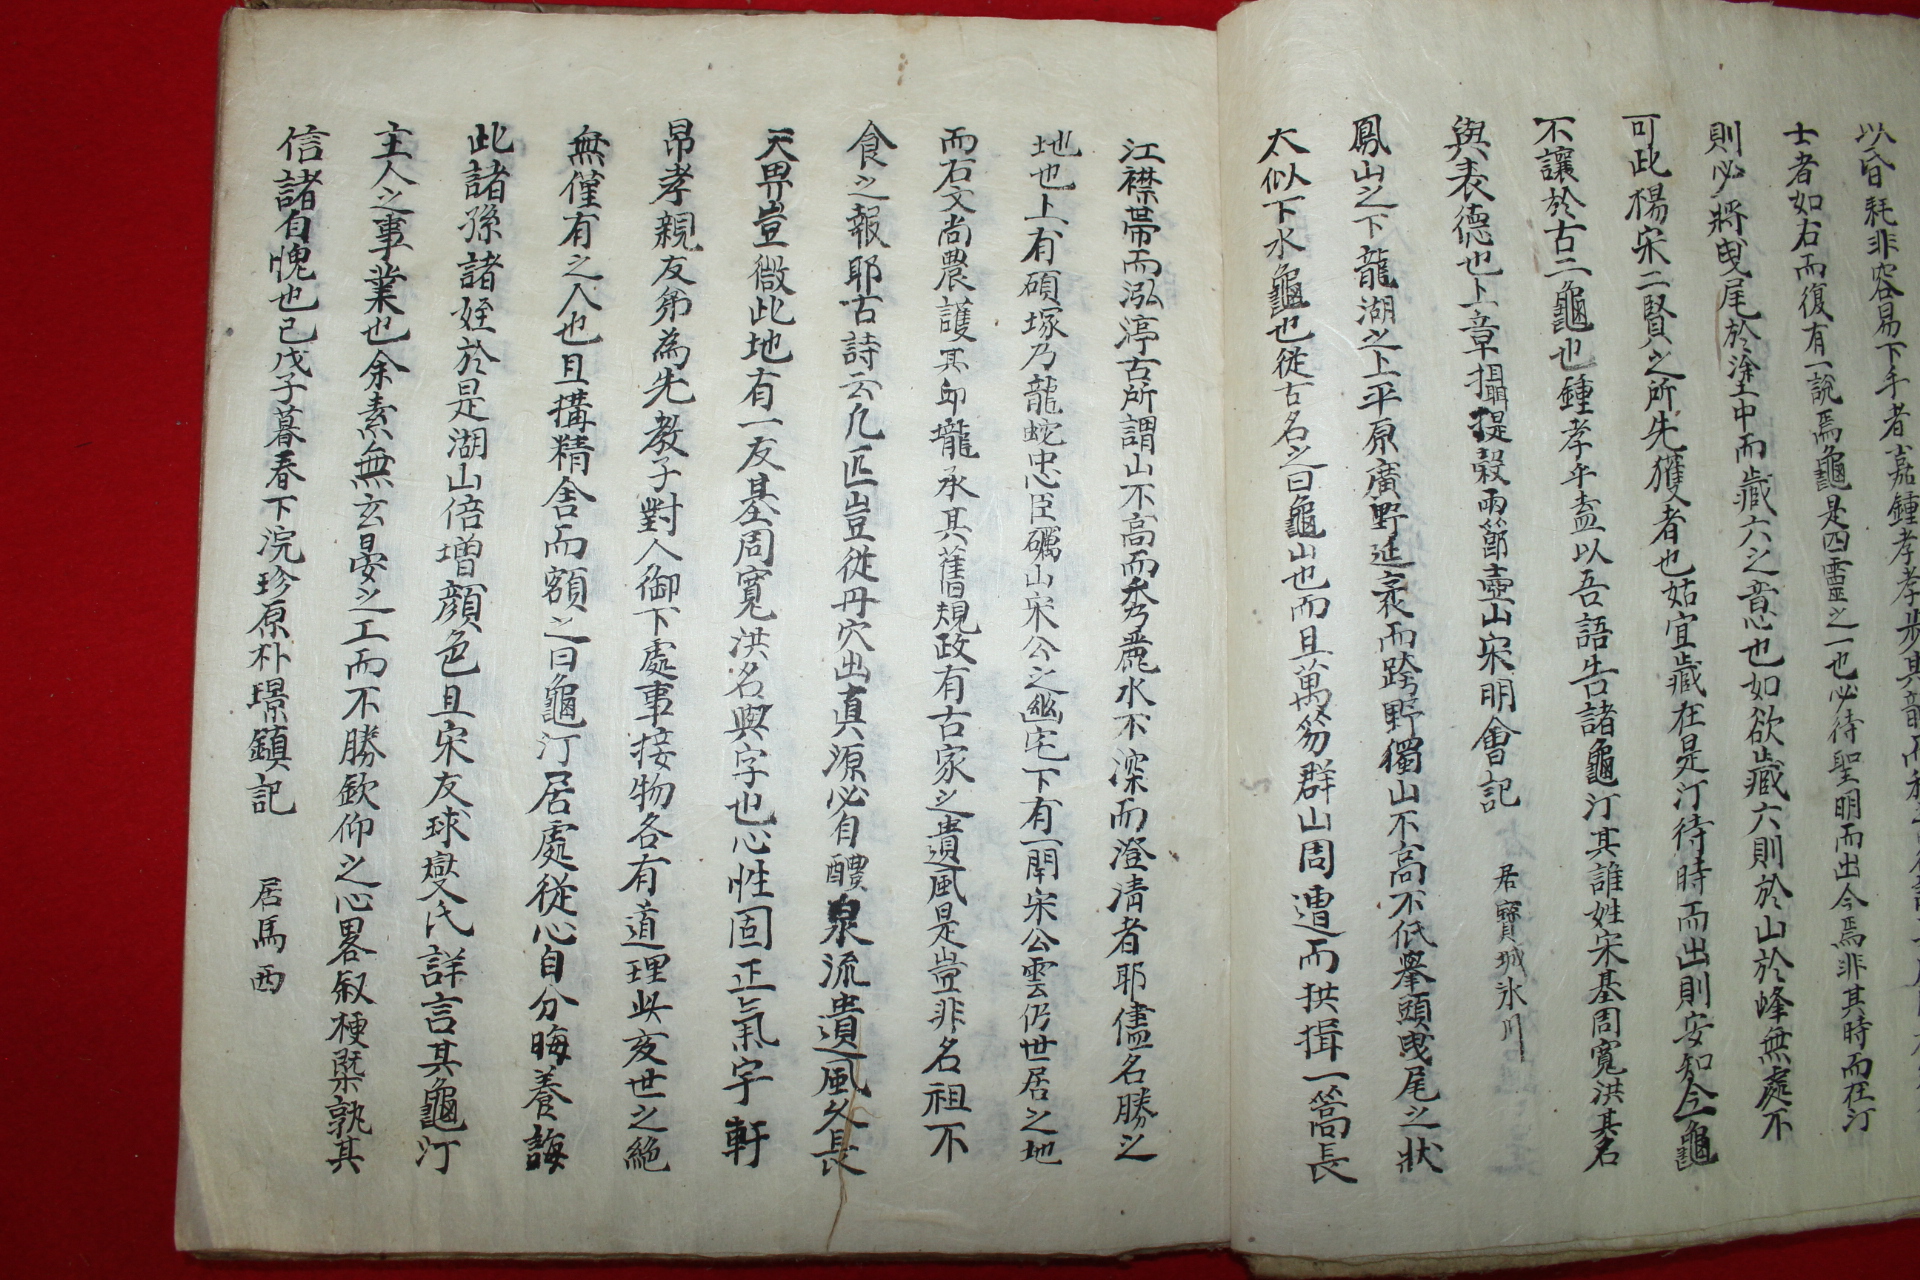 以昏耗非容易下手者嘉鍾孝孝
士者如右而復有一說焉龜是四靈之一也必待聖明而出今焉非其時而在汀
則必將曳尾於塗中而藏六之意也如欲藏六則於山於峰無處不
可此楊宋二賢之所先獲者也姑宜藏在是汀待時而出則安知今龜
不讓於古二龜也鍾孝乎盍以吾語告諸龜汀其誰姓宋基周寬洪其名
與表德也上章攝提穀雨節壺山宋明會記 居寶城氷川
鳳山之下龍湖之上平原廣野延袤而跨野獨山不高不低擧頭曳尾之狀
太似下水龜也從古名之曰龜山也而且萬笏群山周遭而拱揖一篙長
江襟帶而泓渟古所謂山不高而秀麗水不深而澄淸者耶儘名勝之
地也上有碩塚乃龍蛇忠臣礪山宋公之幽宅下有一閈宋公雲仍世居之地
而石文尚農護其邱壠承其舊規政有古家之遺風是豈非名祖不
食之報耶古詩云凡匹豈從丹穴出眞源必自醴泉流遺風久長
天畀豈微此地有一友基周寬洪名與字也心性固正氣宇軒
昂孝親友弟為先敎子對人御下處事接物各有道理此亥世之絶
無僅有之人也且搆精舍而額之曰龜汀居處從心自分晦養誨
此諸孫諸姪於是湖山倍增顔色且宋友球燮氏詳言其龜汀
主人之事業也余素無玄晏之工而不勝欽仰之心畧敍梗槩孰其
信諸自愧也已戊子暮春下浣珍原朴璟鎮記 居馬西